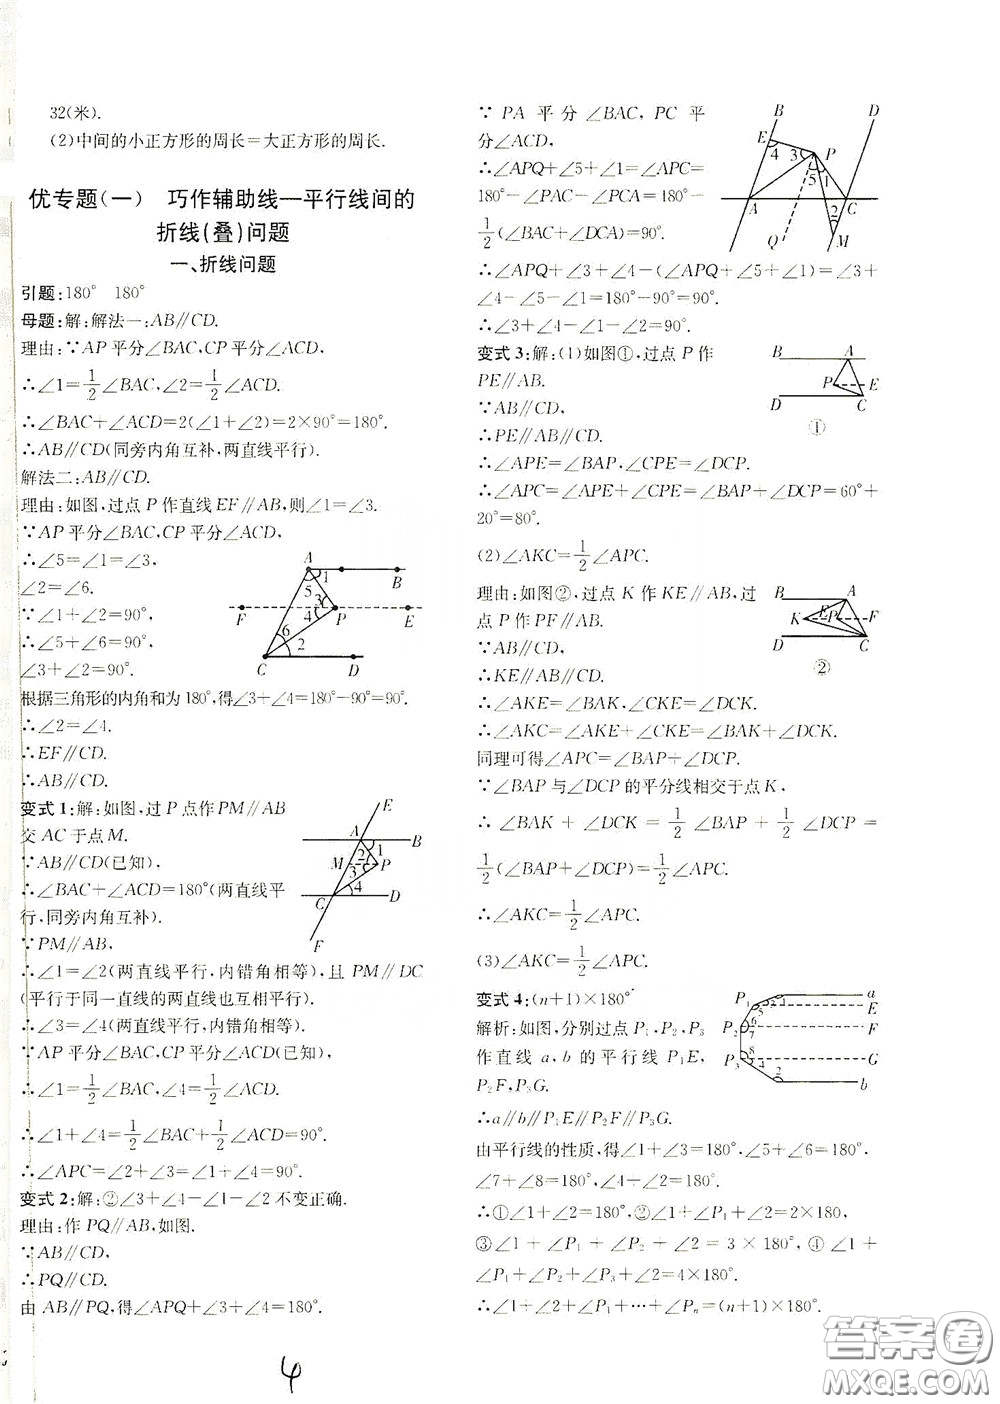 32(米).
(2)中间的小正方形的周长=大正方形的周长.
优专题(一) 巧作辅助线—平行线间的
折线(叠)问题
一、折线问题
引题:180° 180°
母题:解:解法一:AB∥CD.
理由:∵AP平分∠BAC,CP平分∠ACD,
∴∠1=1/2∠BAC,∠2=1/2∠ACD.
∴∠BAC+∠ACD=2(∠1+∠2)=2×90°=180°.
∴AB∥CD(同旁内角互补,两直线平行).
解法二:AB∥CD.
理由:如图,过点P作直线EF∥AB,则∠1=∠3.
∵AP平分∠BAC,CP平分∠ACD,
∴∠5=∠1=∠3,
∠2=∠6.
∵∠1+∠2=90°,
∴∠5+∠6=90°,
∠3+∠2=90°.
根据三角形的内角和为180°,得∠3+∠4=180°-90°=90°.
∴∠2=∠4.
∴EF∥CD.
∴AB∥CD.
A 1 B 5 3 F 4 P E 6 2 C D
变式1:解:如图,过P点作PM∥AB
交AC于点M.
∵AB∥CD(已知),
∴∠BAC+∠ACD=180°(两直线平
行,同旁内角互补).
∵PM∥AB,
∴∠1=∠2(两直线平行,内错角相等),且PM∥DC
(平行于同一直线的两直线也互相平行).
∴∠3=∠4(两直线平行,内错角相等).
∵AP平分∠BAC,CP平分∠ACD(已知),
∴∠1=1/2∠BAC,∠4=1/2∠ACD.
∴∠1+∠4=1/2∠BAC+1/2∠ACD=90°.
∴∠APC=∠2+∠3=∠1+∠4=90°.
E A B 1 M 2 P 3 4 C D F
变式2:解:②∠3+∠4-∠1-∠2不变正确.
理由:作PQ∥AB,如图.
∵AB∥CD,
∴PQ∥CD.
由AB∥PQ,得∠APQ+∠3+∠4=180°.
∵PA平分∠BAC,PC平
分∠ACD,
∴∠APQ+∠5+∠1=∠APC=
180°-∠PAC-∠PCA=180°-
1/2(∠BAC+∠DCA)=90°.
∴∠APQ+∠3+∠4-(∠APQ+∠5+∠1)=∠3+
∠4-∠5-∠1=180°-90°=90°.
∴∠3+∠4-∠1-∠2=90°.
B D E 4 3 P 5 1 A 2 C Q M
变式3:解:(1)如图①,过点P作
PE∥AB.
∵AB∥CD,
∴PE∥AB∥CD.
∴∠APE=∠BAP,∠CPE=∠DCP.
∴∠APC=∠APE+∠CPE=∠BAP+∠DCP=60°+
20°=80°.
B A P E D C
①
(2)∠AKC=1/2∠APC.
理由:如图②,过点K作KE∥AB,过
点P作PF∥AB.
∵AB∥CD,
∴KE∥AB∥CD.
∴∠AKE=∠BAK,∠CKE=∠DCK.
∴∠AKC=∠AKE+∠CKE=∠BAK+∠DCK.
同理可得∠APC=∠BAP+∠DCP.
∵∠BAP与∠DCP的平分线相交于点K,
∴∠BAK+∠DCK=1/2∠BAP+1/2∠DCP=
1/2(∠BAP+∠DCP)=1/2∠APC.
∴∠AKC=1/2∠APC.
B A K E P F D C
②
(3)∠AKC=1/2∠APC.
变式4:(n+1)×180°
解析:如图,分别过点P1,P2,P3
作直线a,b的平行线P1E,
P2F,P3G.
∴a∥b∥P1E∥P2F∥P3G.
由平行线的性质,得∠1+∠3=180°,∠5+∠6=180°,
∠7+∠8=180°,∠4+∠2=180°.
∴①∠1+∠2=180°,②∠1+∠P1+∠2=2×180,
③∠1+∠P1+∠P2+∠2=3×180°,④∠1+
∠P1+∠P2+∠P3+∠2=4×180°.
∴∠1+∠2+∠P1+…+∠Pn=(n+1)×180°.
P1 a E 5 P2 6 7 F P3 8 4 G 2 b
4
答案卷
MXQE.COM